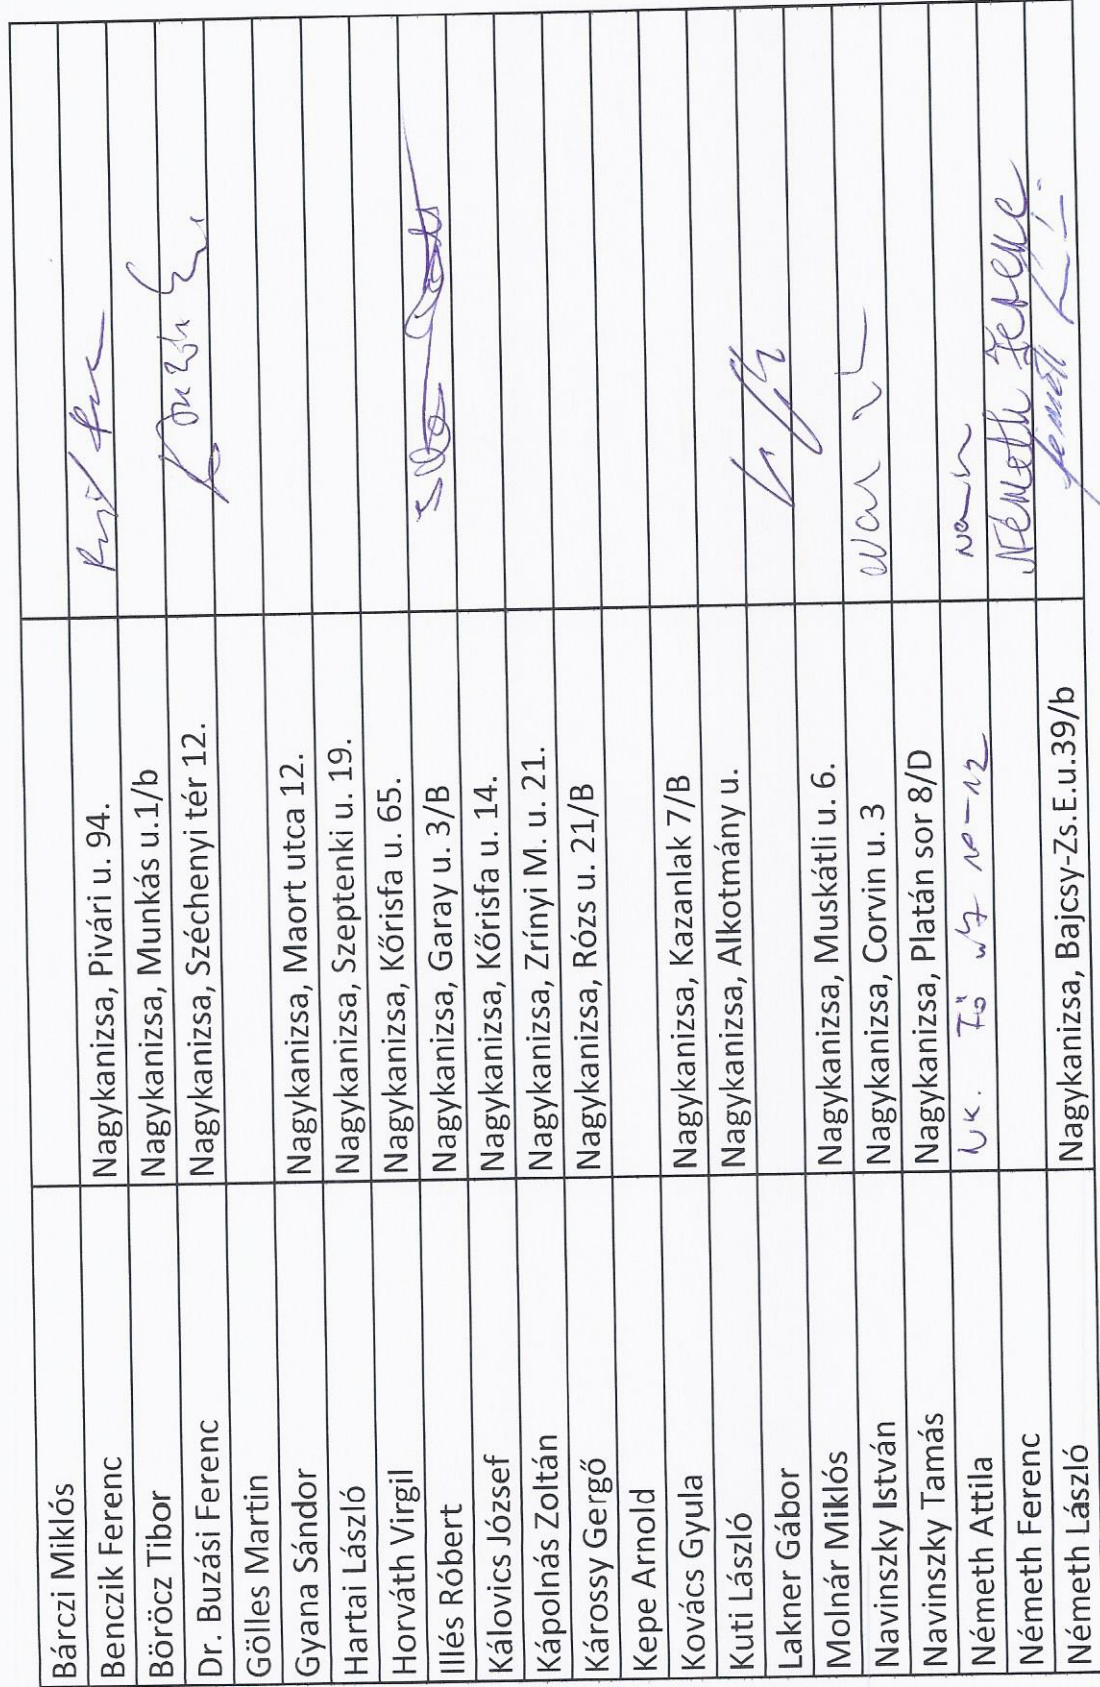 Bárczi Miklós
Benczik Ferenc Nagykanizsa, Pivári u. 94.
Böröcz Tibor Nagykanizsa, Munkás u.1/b
Dr. Buzási Ferenc Nagykanizsa, Széchenyi tér 12.
Gölles Martin
Gyana Sándor Nagykanizsa, Maort utca 12.
Hartai László Nagykanizsa, Szeptenki u. 19.
Horváth Virgil Nagykanizsa, Kőrisfa u. 65.
Illés Róbert Nagykanizsa, Garay u. 3/B
Kálovics József Nagykanizsa, Kőrisfa u. 14.
Kápolnás Zoltán Nagykanizsa, Zrínyi M. u. 21.
Károssy Gergő Nagykanizsa, Rózs u. 21/B
Kepe Arnold
Kovács Gyula Nagykanizsa, Kazanlak 7/B
Kuti László Nagykanizsa, Alkotmány u.
Lakner Gábor
Molnár Miklós Nagykanizsa, Muskátli u. 6.
Navinszky István Nagykanizsa, Corvin u. 3
Navinszky Tamás Nagykanizsa, Platán sor 8/D
Németh Attila NK. Fő 10-12
Németh Ferenc Németh Ferenc
Németh László Nagykanizsa, Bajcsy-Zs.E.u.39/b